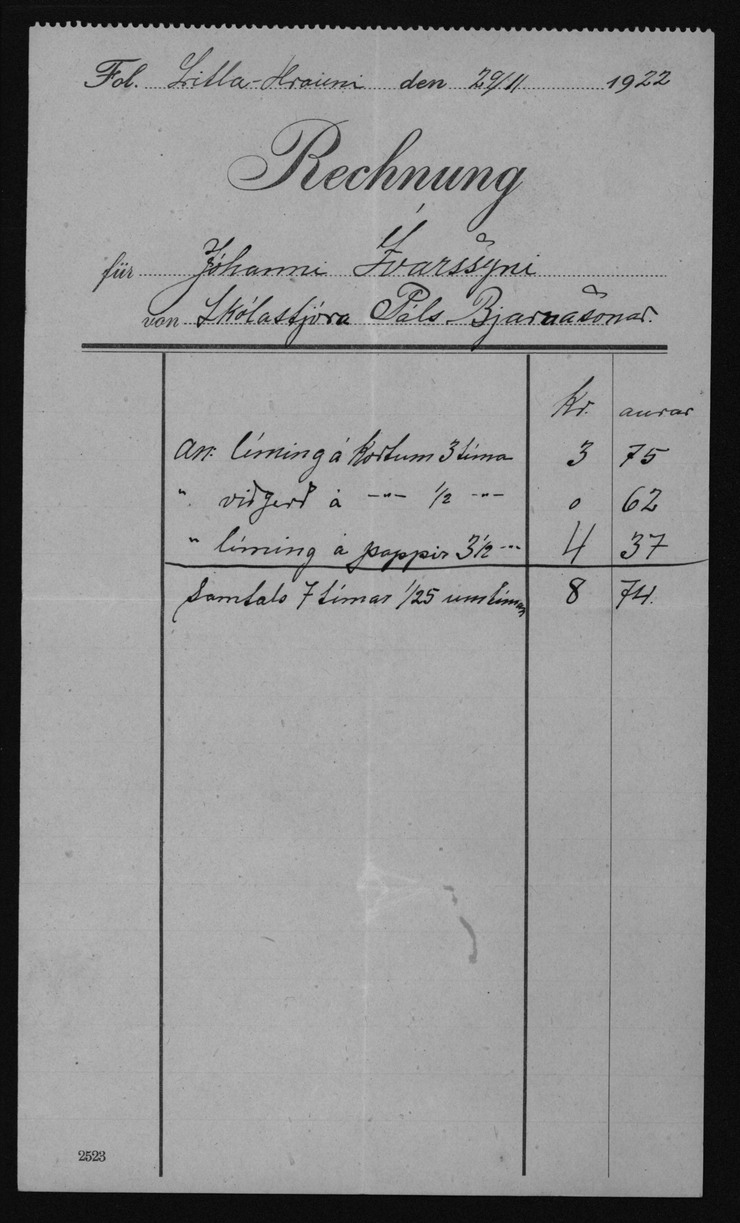 Fol. Litla-Hrauni den 29/11 1922
Rechnung
für Jóhanni Ívarssyni
von Skólastjóra Páls Bjarnasonar.
Kr. aurar
An: líming á kortum 3 tíma 3 75
" viðgerð á -"- 1/2 -"- 0 62
" líming á pappír 3 1/2 -"- 4 37
Samtals 7 tímar 1/25 um tíman 8 74.
2523